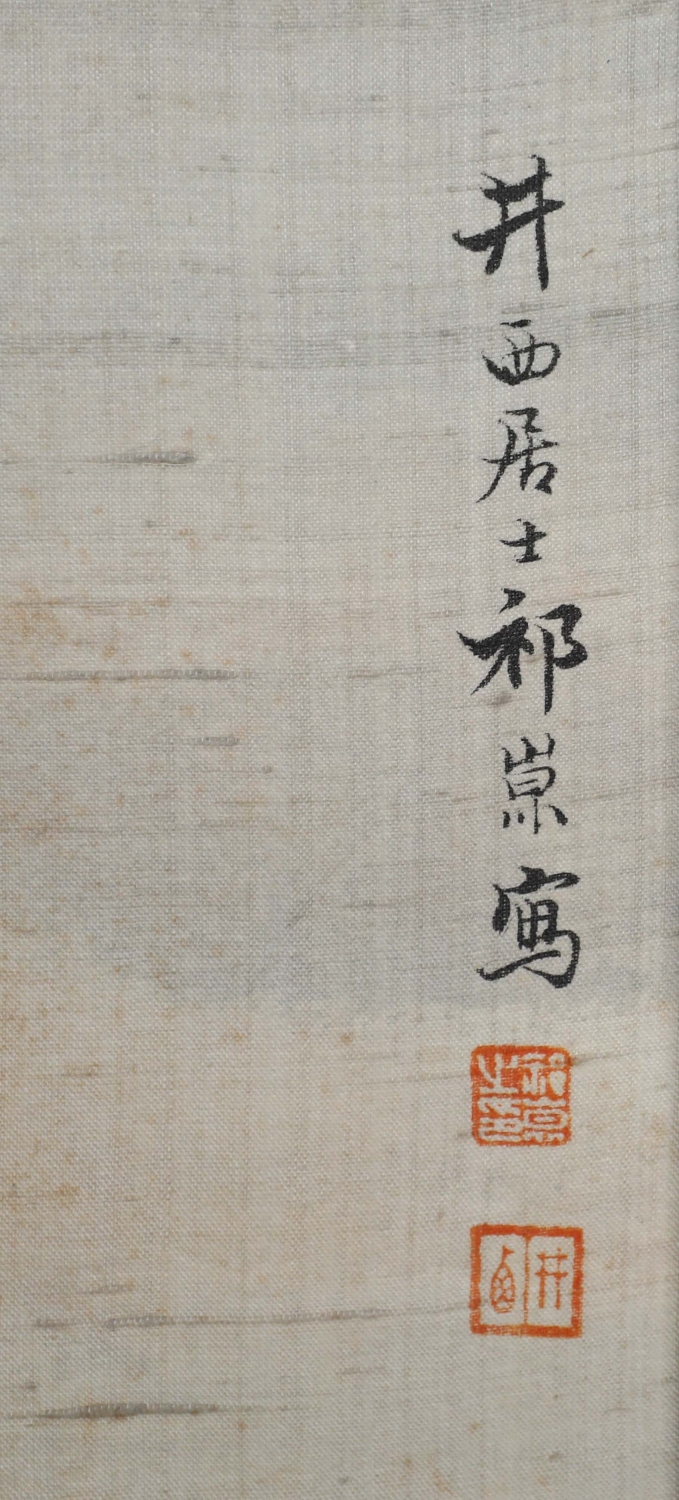 井西居士祁崑寫
祁崑之印
井西